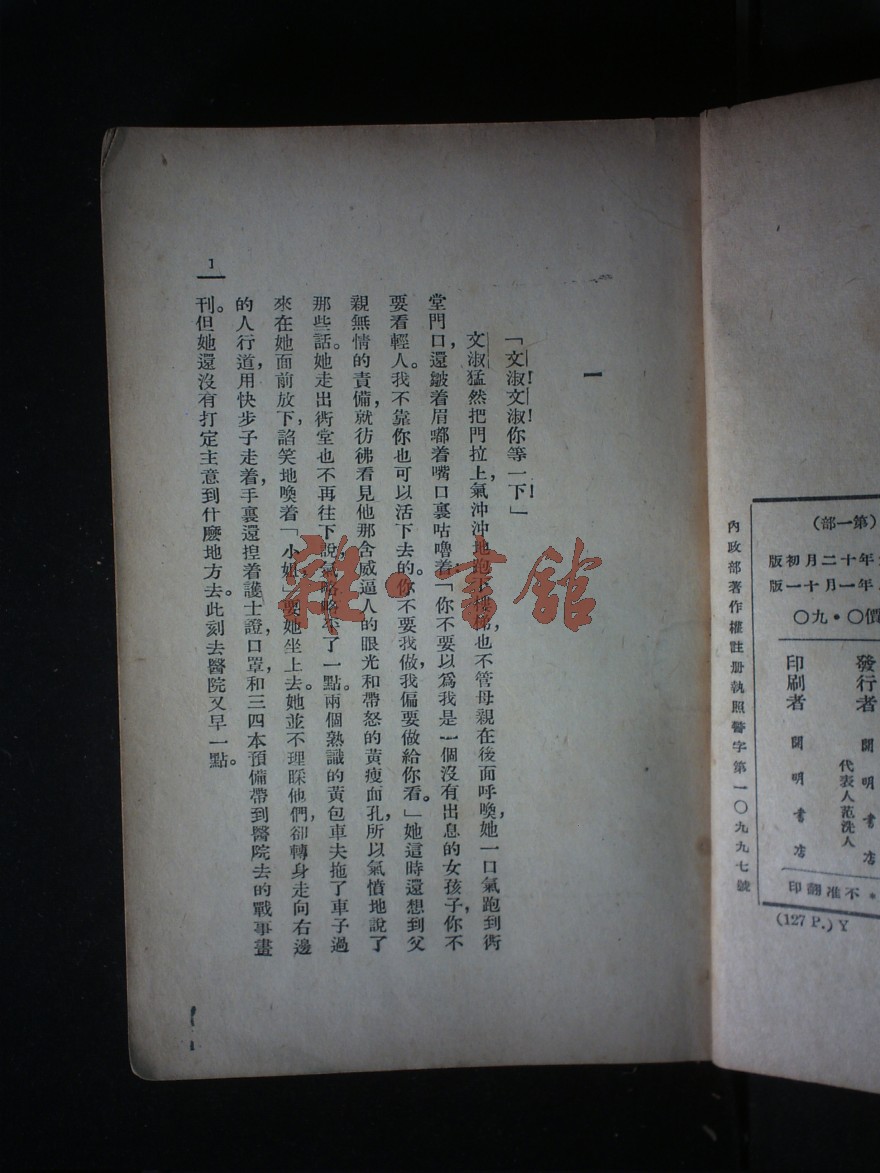 （第一部）
年十二月初版
年一月十一版
價〇・九〇
發行者 開明書店
代表人范洗人
印刷者 開明書店
・不准翻印
(127 P.) Y
內政部著作權註册執照警字第一〇九九七號
一
「文淑！文淑！你等一下！」
文淑猛然把門拉上，氣沖沖地跑下樓梯，也不管母親在後面呼喚，她一口氣跑到衖
堂門口，還皺着眉嘟着嘴口裏咕嚕着：「你不要以爲我是一個沒有出息的女孩子，你不
要看輕人。我不靠你也可以活下去的。你不要我做，我偏要做給你看。」她這時還想到父
親無情的責備，就彷彿看見他那含威逼人的眼光和帶怒的黃瘦面孔，所以氣憤地說了
那些話。她走出衖堂也不再往下說，氣略略平了一點。兩個熟識的黃包車夫拖了車子過
來在她面前放下，諂笑地喚着「小姐，」要她坐上去。她並不理睬他們，卻轉身走向右邊
的人行道，用快步子走着，手裏還揑着護士證，口罩，和三四本預備帶到醫院去的戰事畫
刊。但她還沒有打定主意到什麽地方去。此刻去醫院又早一點。
1
雜・書館